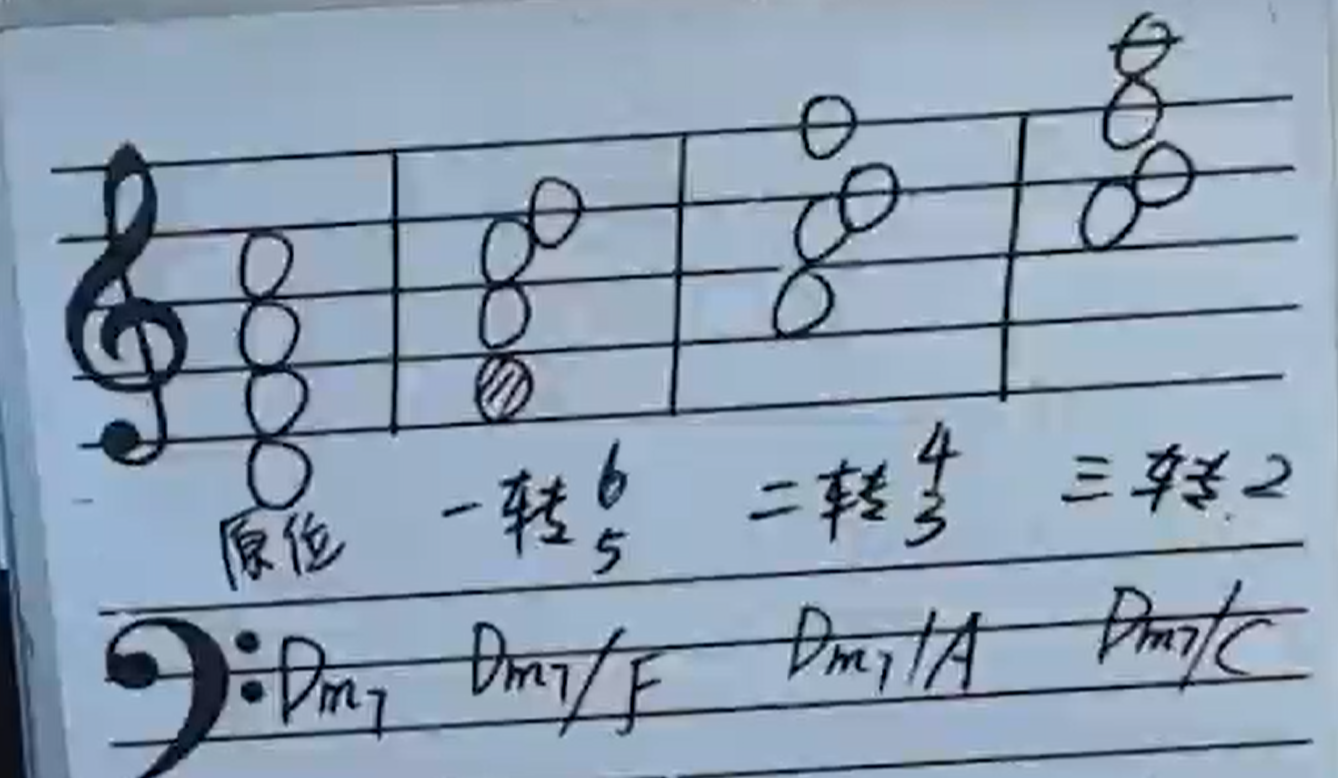 原位 一转 6 5 二转 4 3 三转 2
Dm7 Dm7/F Dm7/A Dm7/C